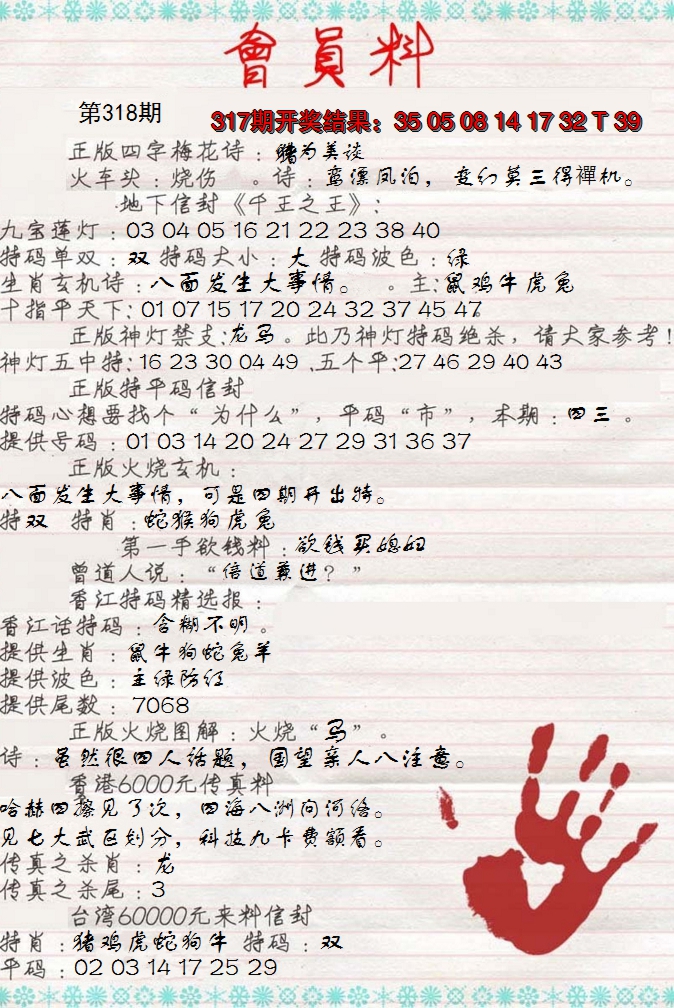 會員料
第318期
317期开奖结果：35 05 08 14 17 32 T 39
正版四字梅花诗：传为美谈
火车头：烧伤　。诗：鸾漂凤泊，变幻莫三得禪机。
地下信封《千王之王》：
九宝莲灯：03 04 05 16 21 22 23 38 40
特码单双：双 特码大小：大 特码波色：绿
生肖玄机诗：八面发生大事情。　。主：鼠鸡牛虎兔
十指平天下：01 07 15 17 20 24 32 37 45 47
正版神灯禁支：龙马。此乃神灯特码绝杀，请大家参考！
神灯五中特：16 23 30 04 49 .五个平：27 46 29 40 43
正版特平码信封
特码心想要找个“为什么”，平码“市”，本期：四三。
提供号码：01 03 14 20 24 27 29 31 36 37
正版火烧玄机：
八面发生大事情，可是四期开出特。
特双　特肖：蛇猴狗虎兔
第一手欲钱料：欲钱买媳妇
曾道人说：“倍道兼进？”
香江特码精选报：
香江话特码：含糊不明。
提供生肖：鼠牛狗蛇兔羊
提供波色：主绿防红
提供尾数：7068
正版火烧图解：火烧“马”。
诗：虽然很四人话题，国望亲人八注意。
香港6000元传真料
哈赫四擦见了次，四海八洲问河络。
见七大武区划分，科技九卡费额看。
传真之杀肖：龙
传真之杀尾：3
台湾60000元来料信封
特肖：猪鸡虎蛇狗牛 特码：双
平码：02 03 14 17 25 29